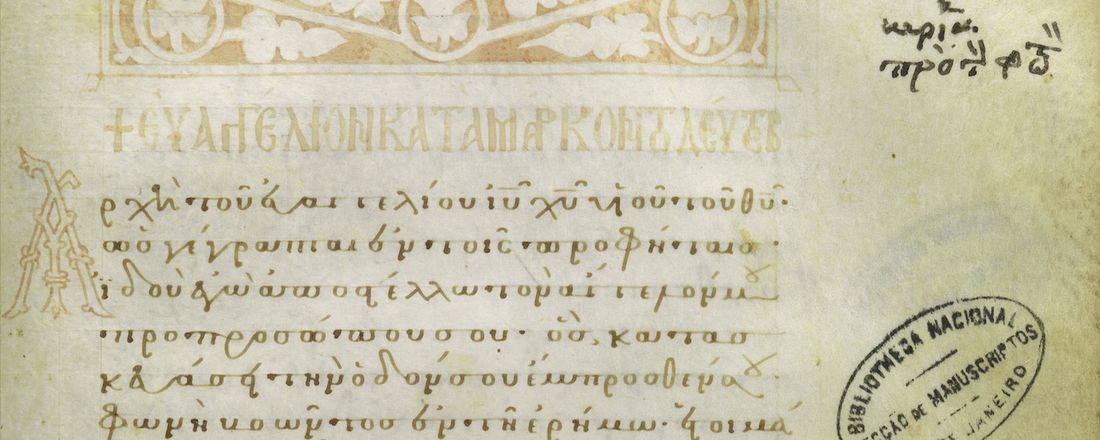 κυριακ
πρὸ τ φώτ
+ΕΥΑΓΓΕΛΙΟΝ ΚΑΤΑ ΜΑΡΚΟΝ
Ἀρχὴ τοῦ εὐαγγελίου ἰῦ χῦ υἱοῦ τοῦ θῦ·
ὡς γέγραπται ἐν τοῖς προφήταις·
ἰδοὺ ἐγὼ ἀποστέλλω τὸν ἄγγελόν μου
πρὸ προσώπου σου· ὃς κατασ
κευάσει τὴν ὁδόν σου ἔμπροσθέν σου·
φωνὴ βοῶντος ἐν τῇ ἐρήμω· ἑτοιμά
BIBLIOTHECA NACIONAL
CÇÃO DE MANUSCRIPTOS
DE JANEIRO